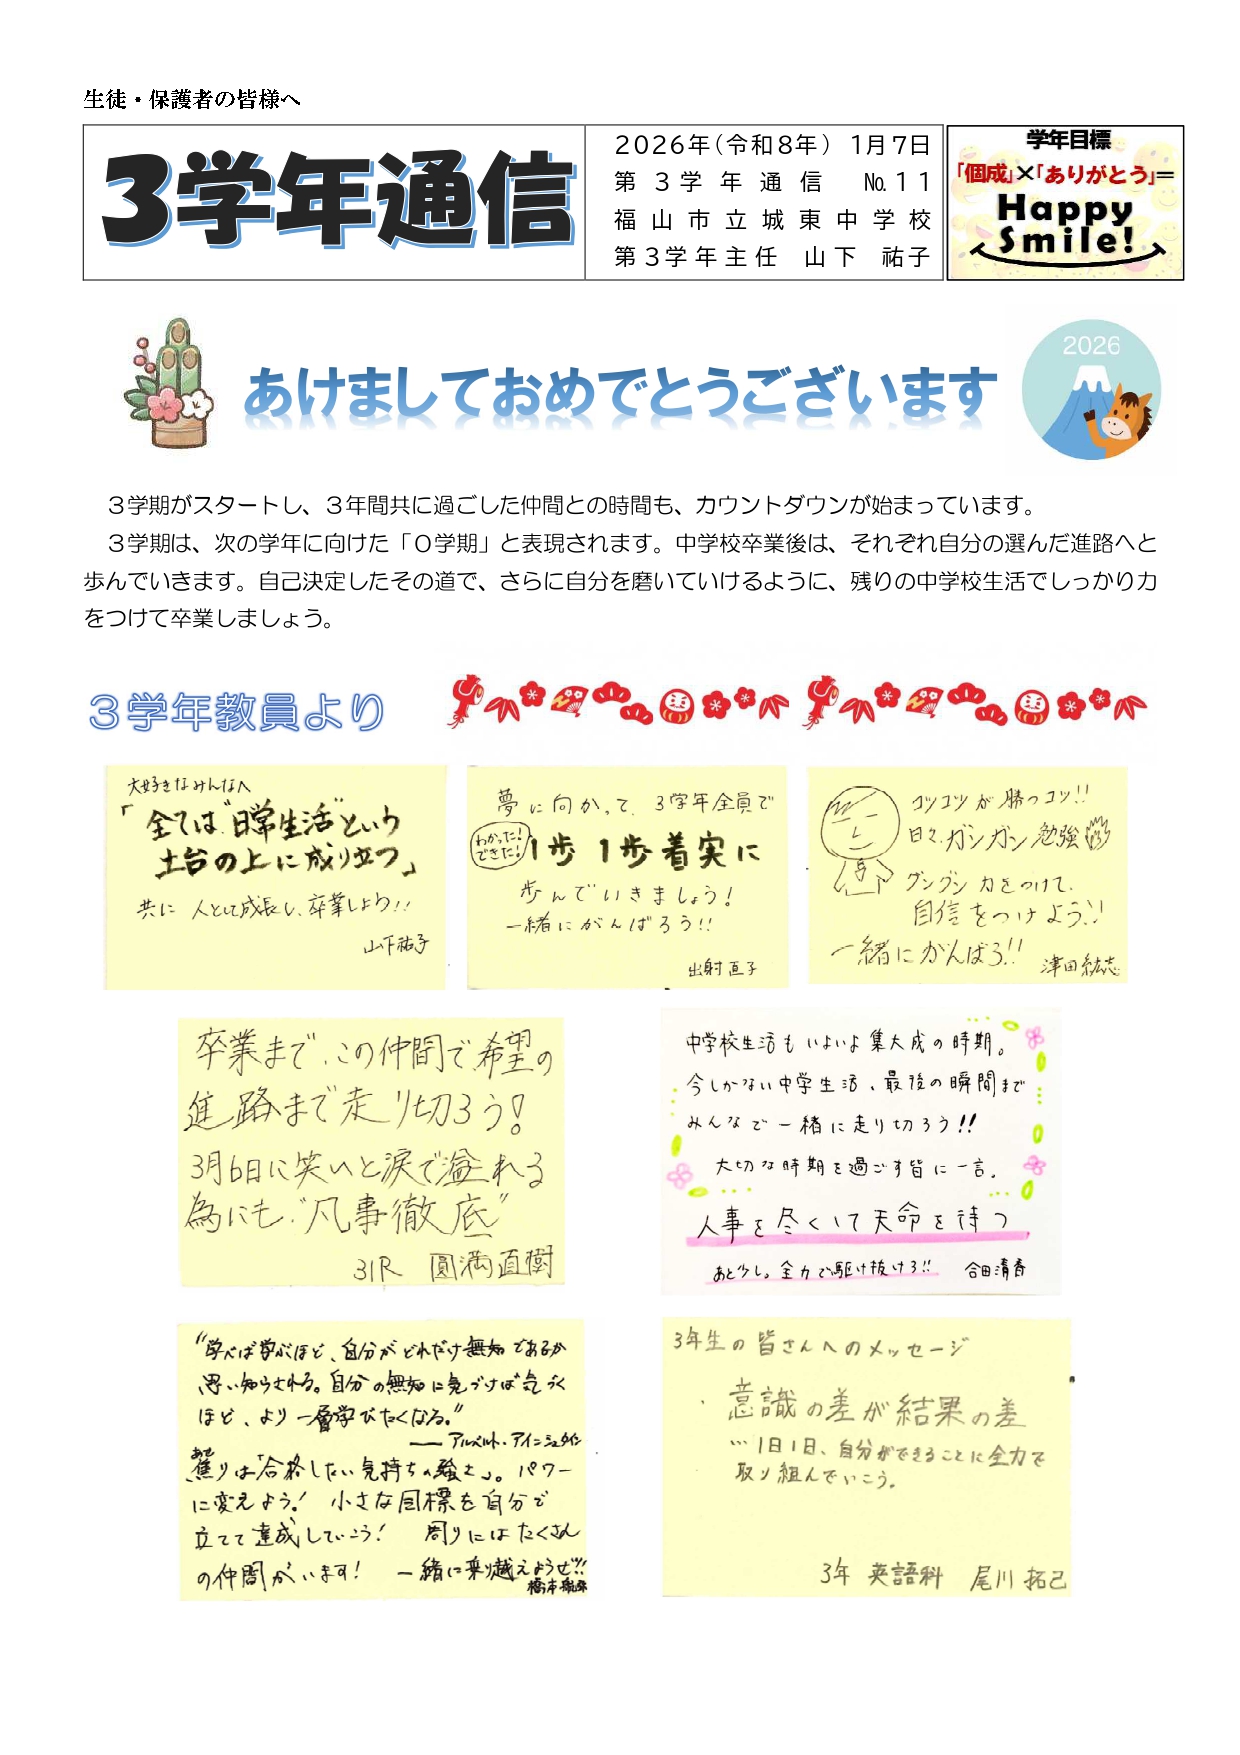 生徒・保護者の皆様へ
3学年通信
2026年(令和8年) 1月7日
第3学年通信 №11
福山市立城東中学校
第3学年主任 山下 祐子
学年目標
「個成」×「ありがとう」＝
Happy
Smile!
あけましておめでとうございます
2026
３学期がスタートし、３年間共に過ごした仲間との時間も、カウントダウンが始まっています。
３学期は、次の学年に向けた「０学期」と表現されます。中学校卒業後は、それぞれ自分の選んだ進路へと
歩んでいきます。自己決定したその道で、さらに自分を磨いていけるように、残りの中学校生活でしっかり力
をつけて卒業しましょう。
３学年教員より
大好きなみんなへ
「全ては"日常生活"という
土台の上に成り立つ」
共に 人として成長し、卒業しよう!!
山下祐子
夢に向かって、3学年全員で
わかった!
できた!
1歩 1歩 着実に
歩んでいきましょう!
一緒にがんばろう!!
出射直子
コツコツが勝つコツ!!
日々ガンガン勉強
グングン力をつけて、
自信をつけよう!!
一緒にがんばろ!!
津田紘志
卒業まで、この仲間で希望の
進路まで走り切ろう!
3月6日に笑いと涙で溢れる
為にも"凡事徹底"
31R 圓満直樹
中学校生活もいよいよ集大成の時期。
今しかない中学生活、最後の瞬間まで
みんなで一緒に走り切ろう!!
大切な時期を過ごす皆に一言。
人事を尽くして天命を待つ
あと少し。全力で駆け抜けろ!!
合田清香
"学べば学ぶほど、自分がどれだけ無知であるか
思い知らされる。自分の無知に気づけば気づく
ほど、より一層学びたくなる。"
― アルベルト・アインシュタイン
あせ
焦りは「合格したい気持ちの強さ」。パワー
に変えよう! 小さな目標を自分で
立てて達成していこう! 周りにはたくさん
の仲間がいます! 一緒に乗り越えようぜ!!!
3年生の皆さんへのメッセージ
・意識の差が結果の差
…1日1日、自分ができることに全力で
取り組んでいこう。
3年 英語科 尾川 拓己